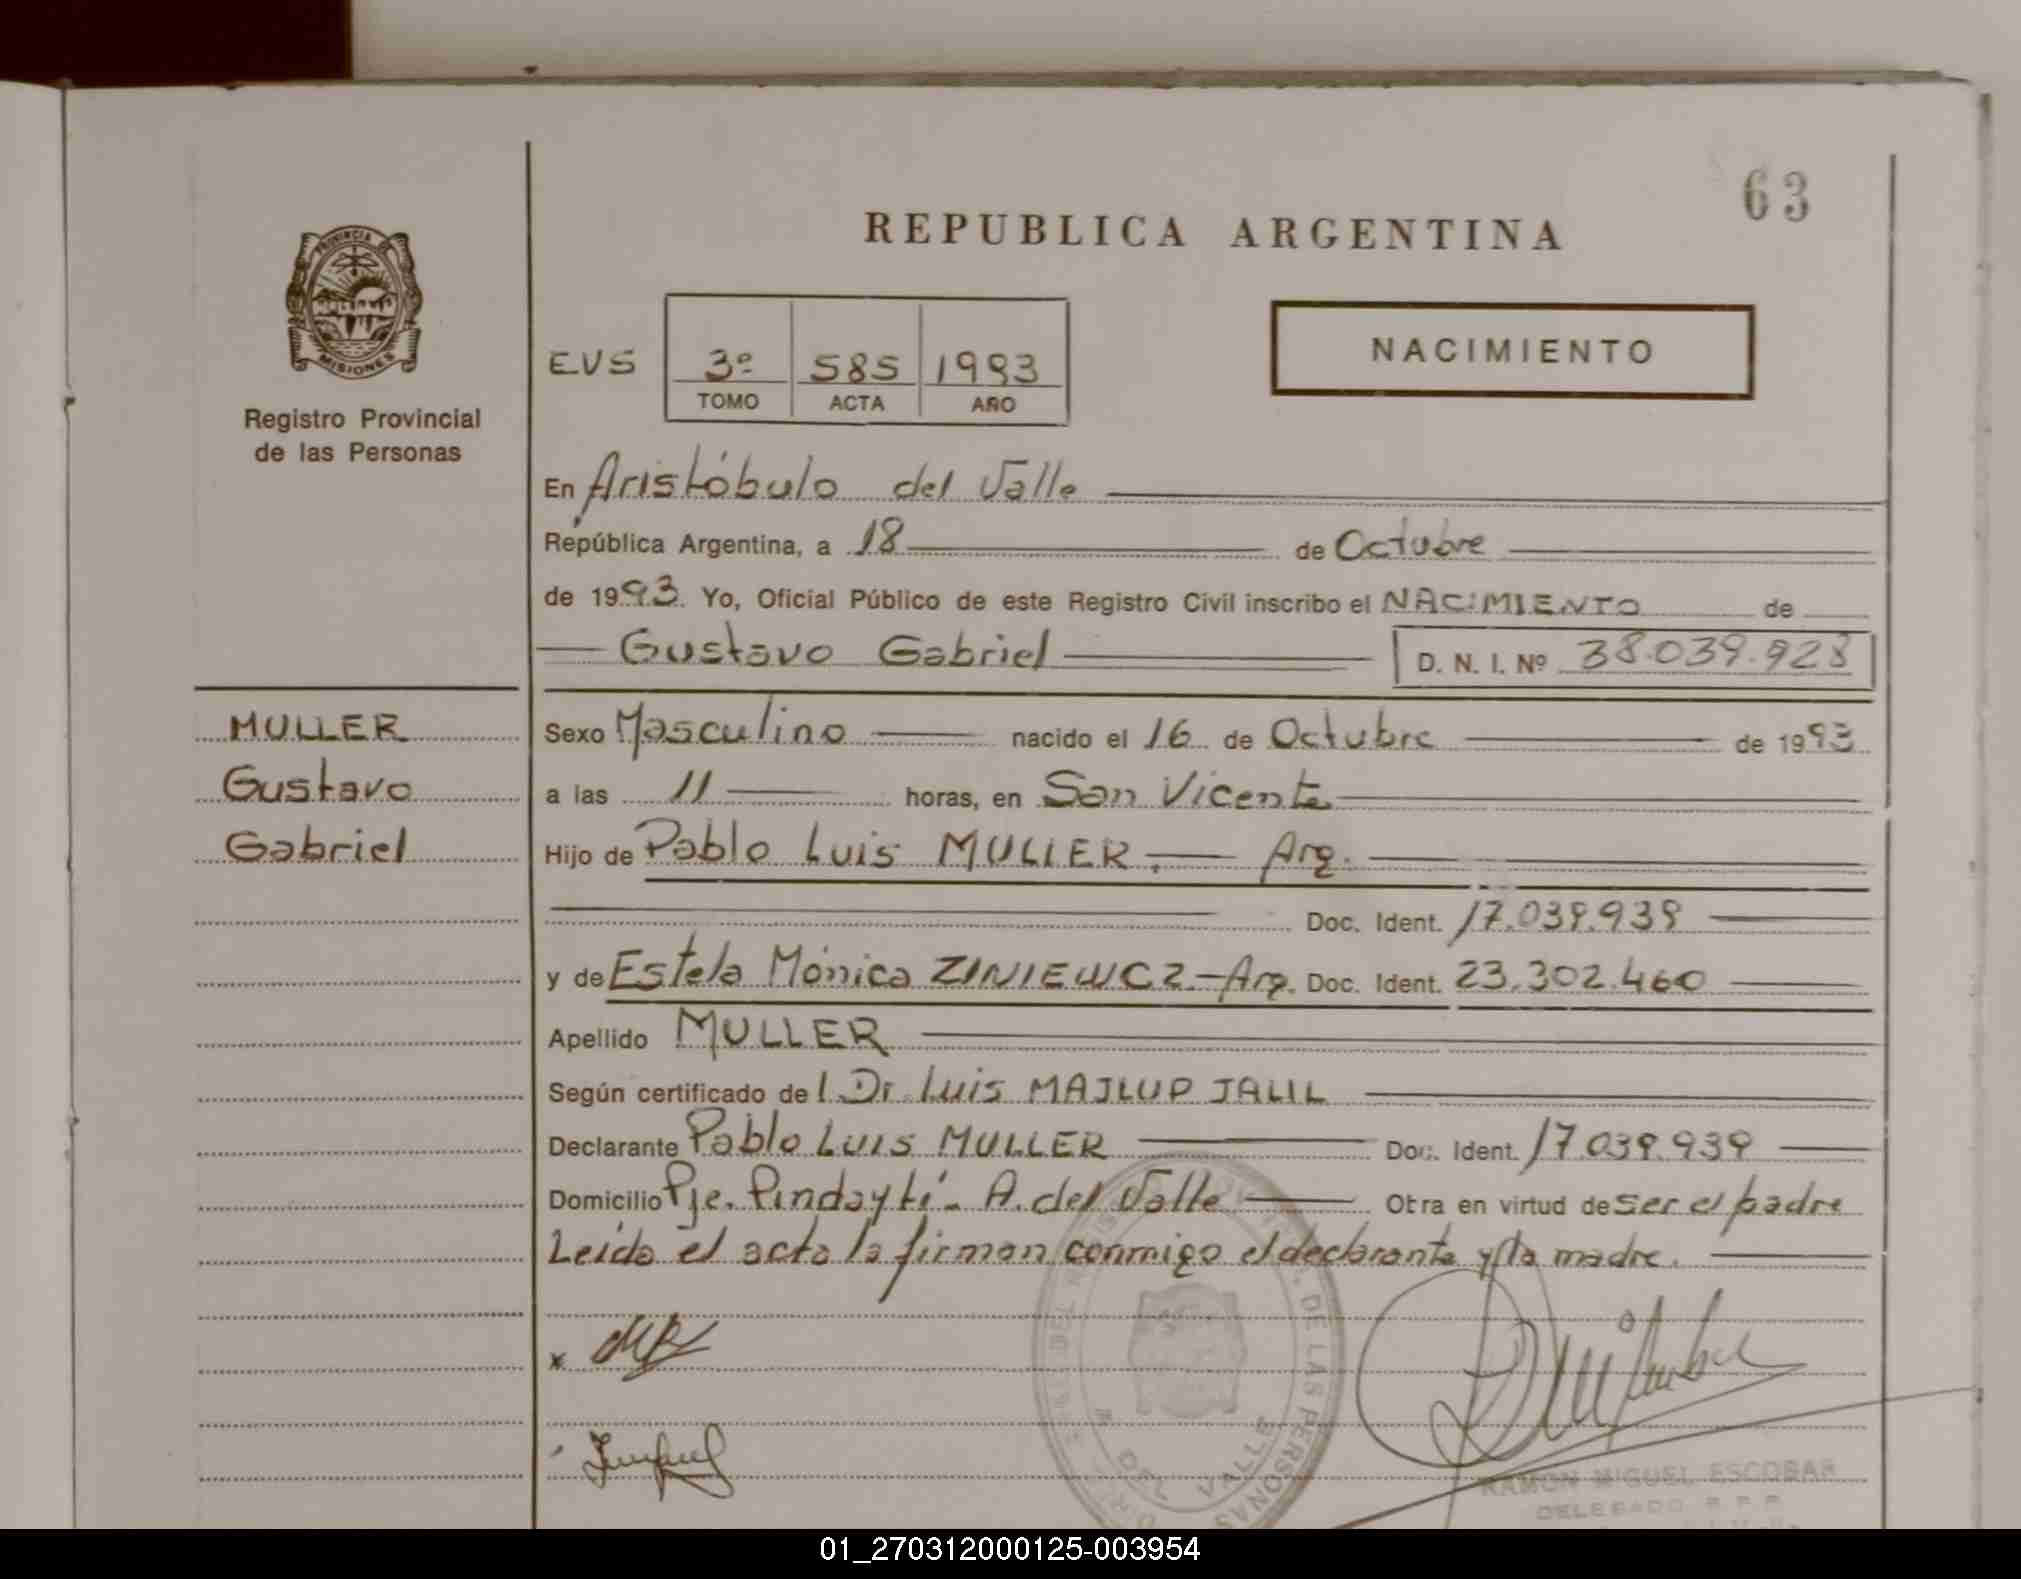 63
REPUBLICA ARGENTINA
PROVINCIA DE
MISIONES
Registro Provincial
de las Personas
NACIMIENTO
EVS 3º 585 1993
TOMO ACTA AÑO
En Aristóbulo del Valle
República Argentina, a 18 de Octubre
de 1993 Yo, Oficial Público de este Registro Civil inscribo el NACIMIENTO de
Gustavo Gabriel D. N. I. Nº 38.039.928
MULLER
Gustavo
Gabriel
Sexo Masculino nacido el 16 de Octubre de 1993
a las 11 horas, en San Vicente
Hijo de Pablo Luis MULLER. Arg.
Doc. Ident. 17.039.939
y de Estela Mónica ZINIEWCZ - Arg. Doc. Ident. 23.302.460
Apellido MULLER
Según certificado de l Dr. Luis MAJLUP JALIL
Declarante Pablo LUIS MULLER Doc. Ident. 17.039.939
Domicilio Pje. Pindaytí - A. del Valle Otra en virtud de ser el padre
Leída el acta la firman conmigo el declarante y la madre.
DE LAS PERSONAS
DEL VALLE
RAMON MIGUEL ESCOBAR
DELEGADO R.P.P.
01_270312000125-003954